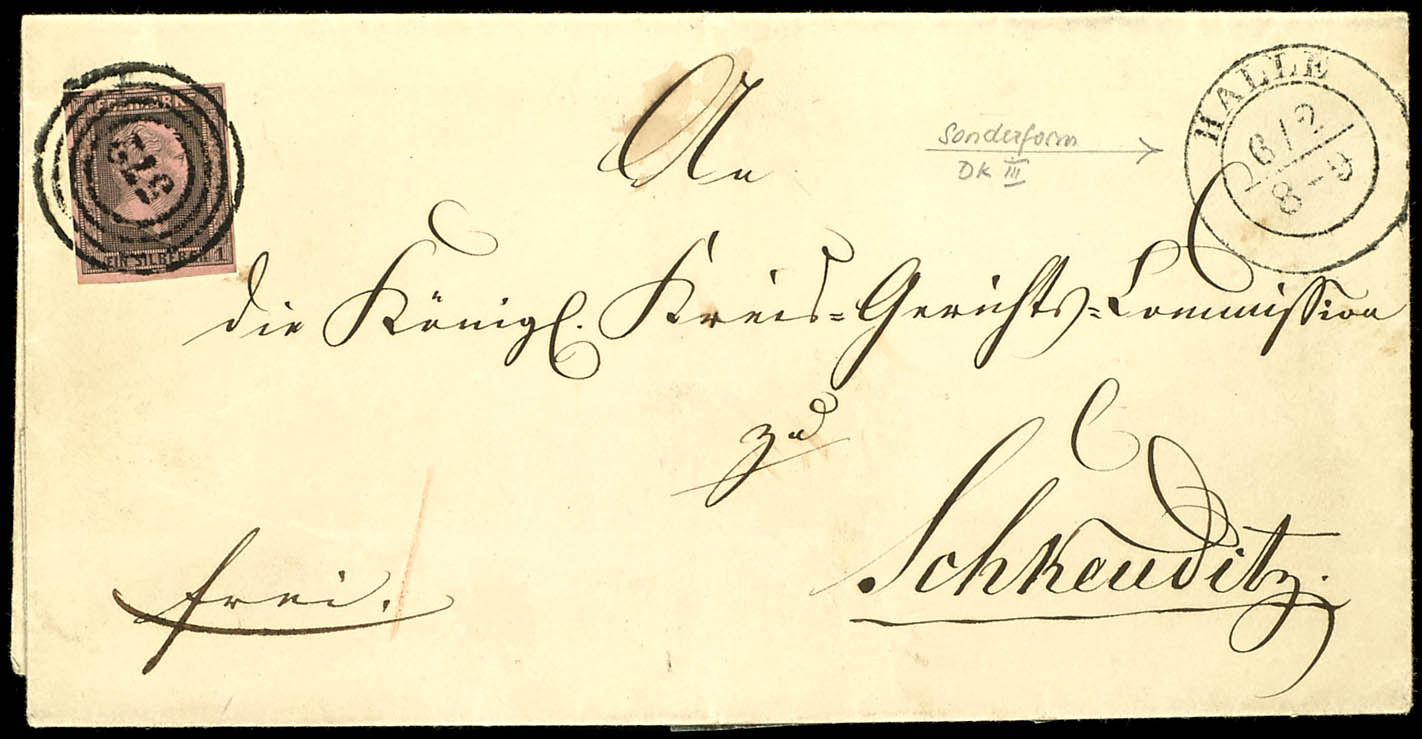 FREIMARKE
575
1 EIN SILBERGR. 1
HALLE
6/2
8-9
Sonderform
DK III
An
die Königl. Kreis=Gerichts=Commission
zu
Schkeuditz.
frei.